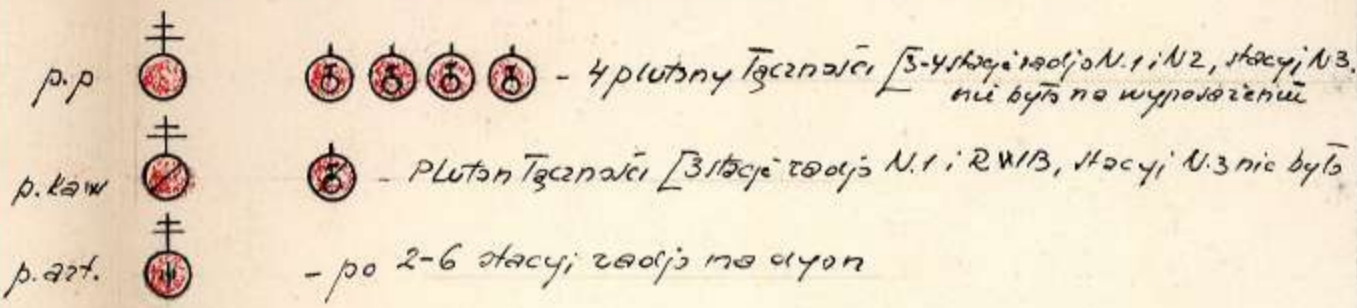 p.p - 4 plutony łączności [3-4 stacje radjo N.1 i N2, stacyj N3.
nie było na wyposażeniu
p.kaw - Pluton łączności [3 stacje radjo N.1 i RWB, stacyj N.3 nie było
p.art. - po 2-6 stacyj radjo na dyon